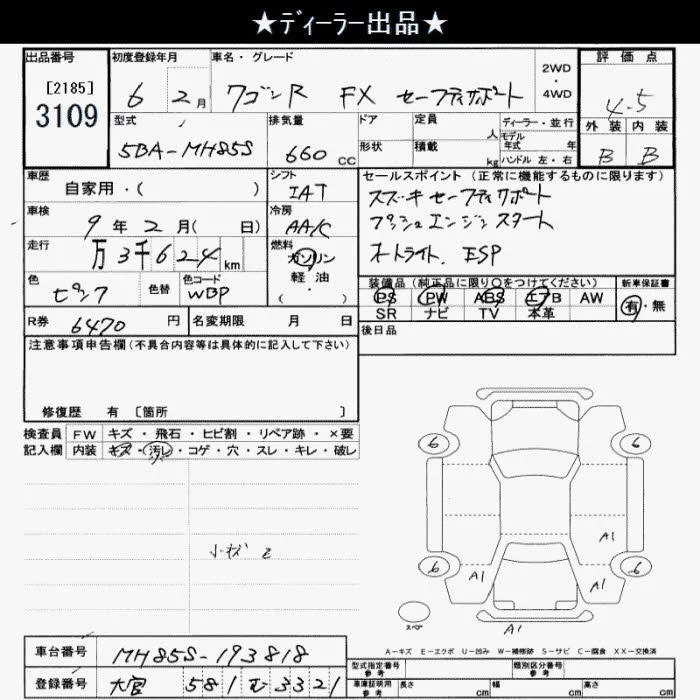 ★ディーラー出品★
出品番号
[2185]
3109
初度登録年月
6 2月
車名・グレード
ワゴンR FX セーフティサポート
2WD
・
4WD
評価点
4.5
外装 内装
B B
型式
5BA-MH85S
排気量
660 CC
ドア
形状
定員 人
積載 kg
ディーラー・並行
モデル年式 年
ハンドル 左・右
車歴
自家用・( )
シフト
IAT
車検
9年2月( 日)
冷房
AA/C
走行
万3千624km
燃料
ガソリン
軽・油
( ・ )
色
ピンク
色替
色コード
WBP
セールスポイント (正常に機能するものに限ります)
スズキセーフティサポート
プッシュエンジンスタート
オートライト、ESP
装備品(純正品に限り○をつけてください)
PS PW ABS エアB AW
SR ナビ TV 本革
新車保証書
有・無
R券 6470 円
名変期限 月 日
後日品
注意事項申告欄(不具合内容等は具体的に記入して下さい)
修復歴 有 〔箇所 〕
検査員 FW キズ・飛石・ヒビ割・リペア跡・×要
記入欄 内装 キズ・汚レ・コゲ・穴・スレ・キレ・破レ
6 6
小キズ
A1
6 6
A1 A1
スペア
A1
A-キズ E-エクボ U-凹み W-補修跡 S-サビ C-腐食 XX-交換済
車台番号 MH85S-193818
登録番号 大宮 581 む 3321
型式指定番号 参考
類別区分番号 参考
車庫証明用 参考 長さ cm 幅 cm 高さ cm